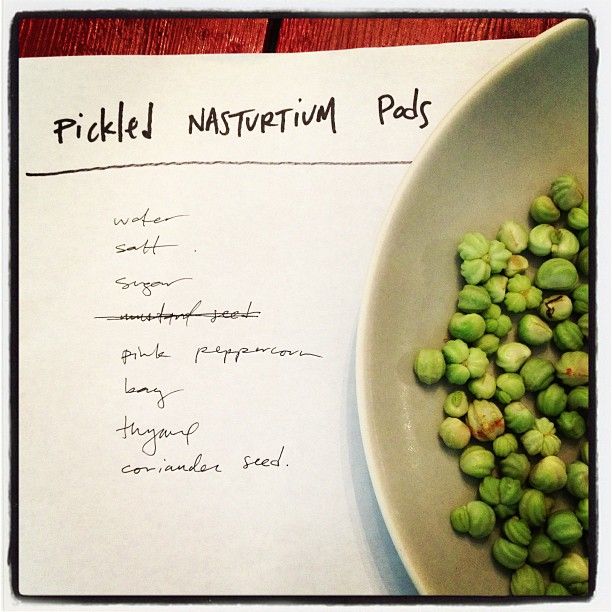 Pickled NASTURTIUM Pods
water
salt.
sugar
mustard seed
pink peppercorn
bay
thyme
coriander seed.